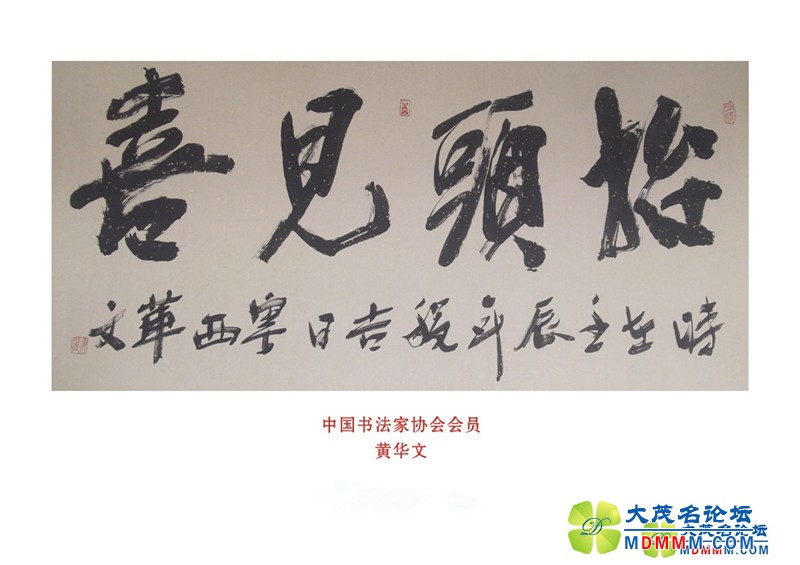 抬頭見喜
時在壬辰年秋吉日粤西華文
中国书法家协会会员
黄华文
大茂名论坛
MDMMM.COM
大茂名论坛
MDMMM.COM